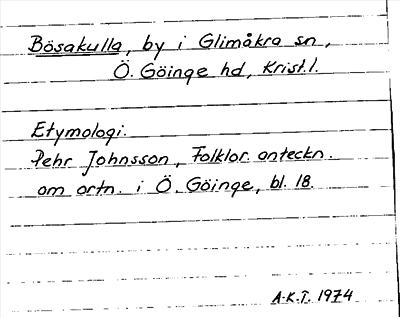 Bösakulla, by i Glimåkra sn,
Ö. Göinge hd, Krist.l.
Etymologi.
Pehr Johnsson, Folklor. anteckn.
om ortn. i Ö. Göinge, bl. 18.
A.K.T. 1974